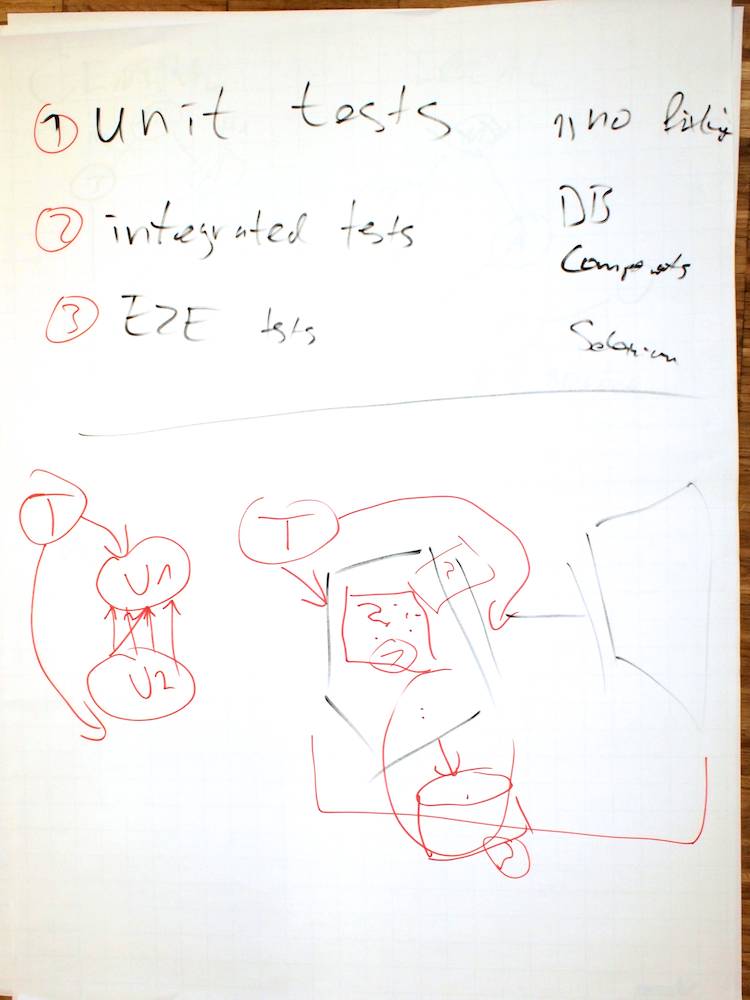 1 unit tests
1) no
2 integrated tests
DB
Components
3 E2E tests
Selenium
T
U1
U2
T
2
2